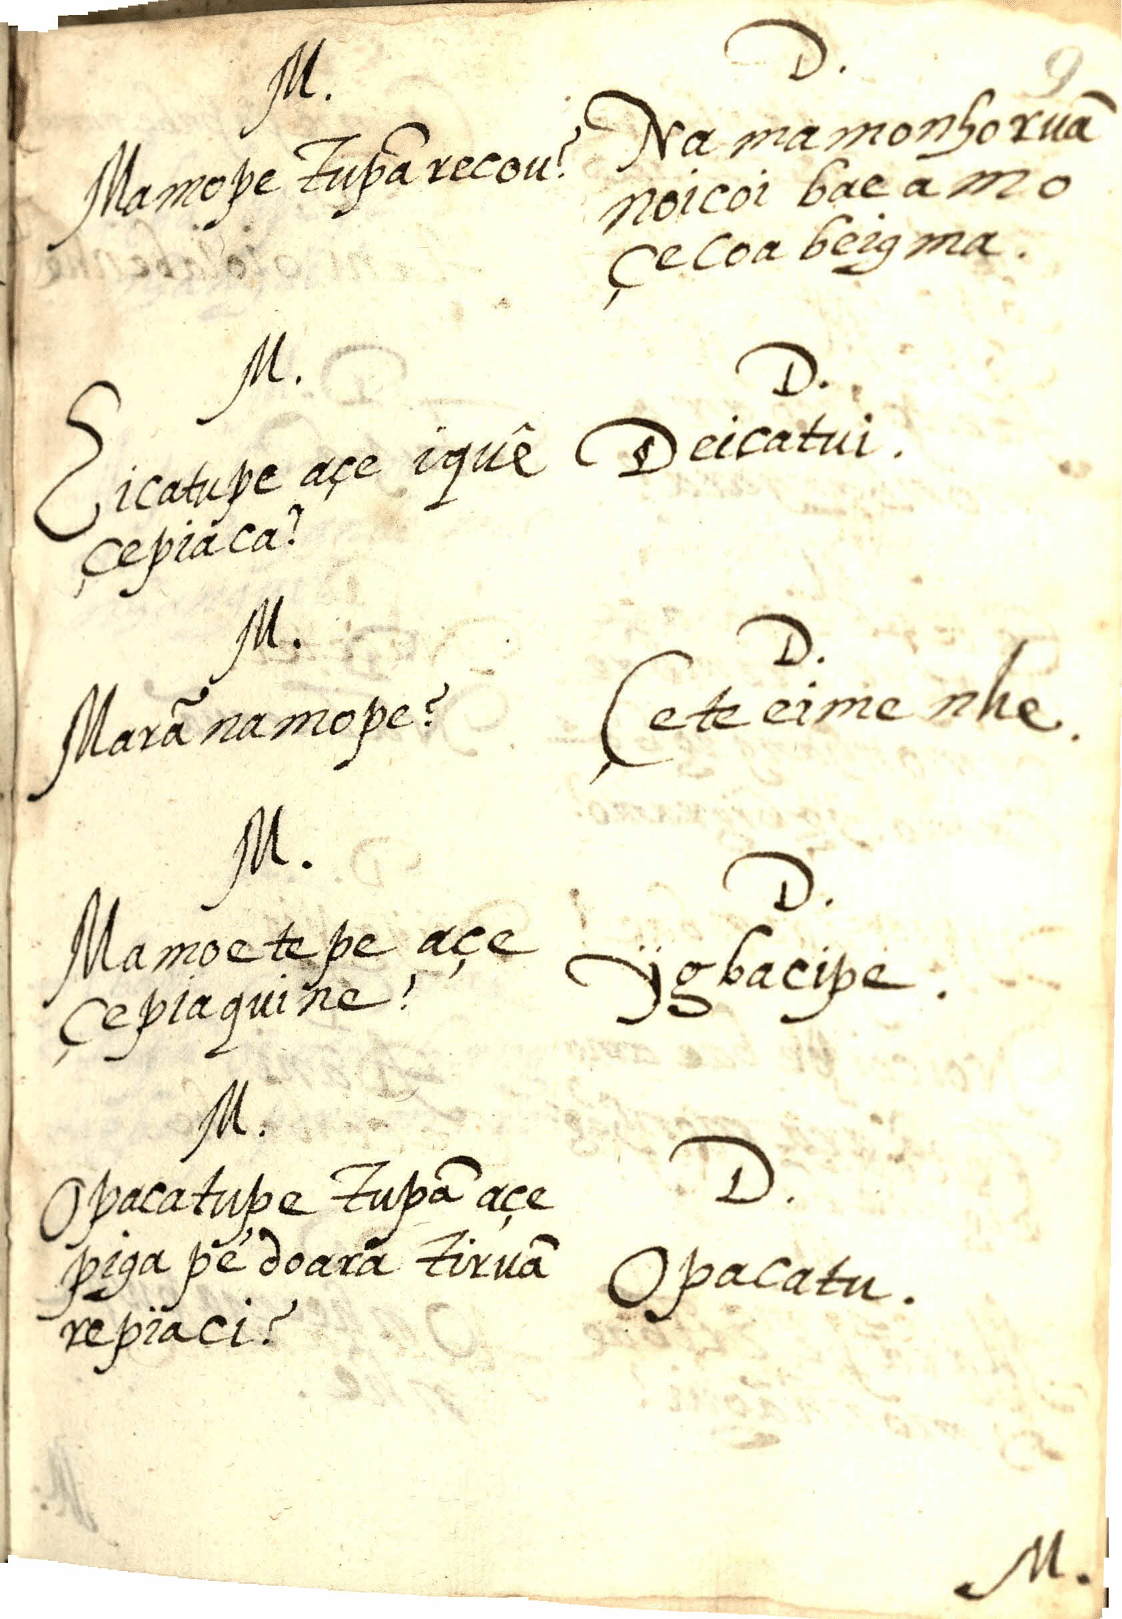 9
M.
Mamope Tupã recou?
D.
Na mamonhoruã
noicoi bae amo
çecoa beigma.
M.
Eicatupe açe iquê
çepiáca?
D.
Deicatui.
M.
Marã namope?
D.
Çete eime nhe.
M.
Mamoetepe açe
çepiaquine?
D.
ÿgbacipe.
M.
Opacatupe Tupã açe
piga pé doara tiruã
repïaci?
D.
Opacatu.
M.